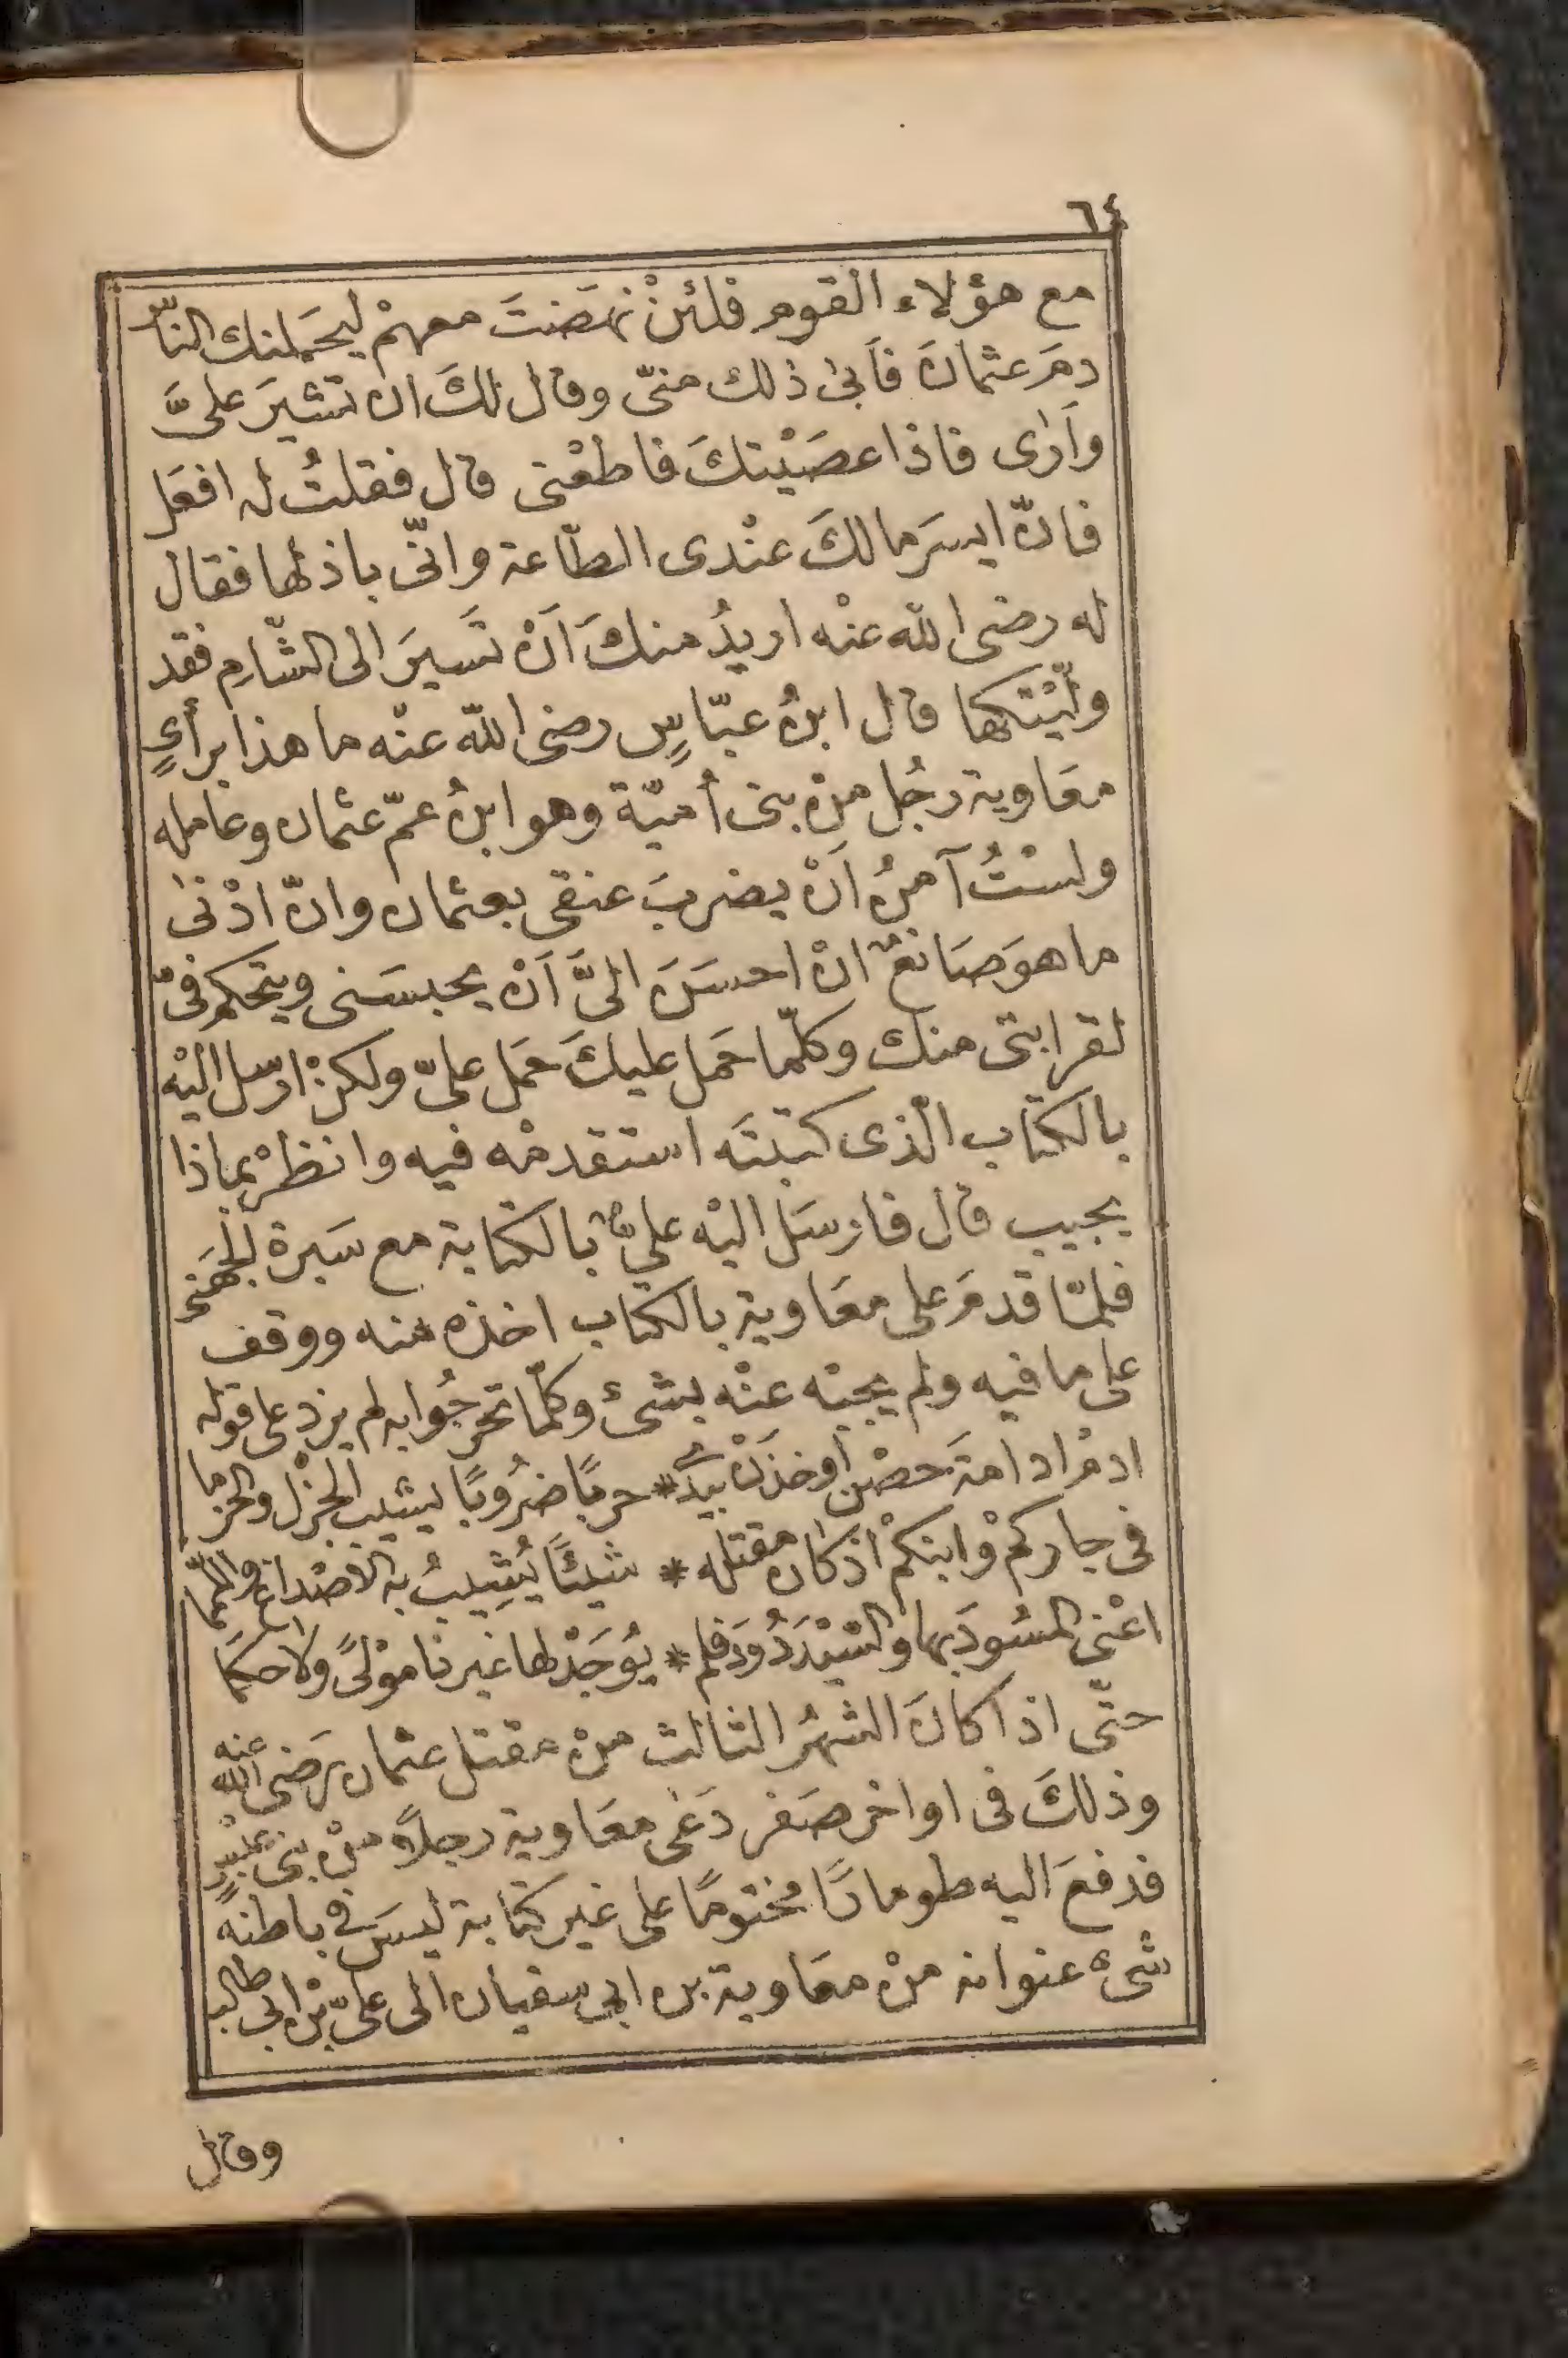 ٦٤
مع هؤلاء القوم فلئنْ نهَضْتَ معهمْ ليحَملنك النّاس
دمَ عثمانَ فأبىٰ ذلك منّى وقال لكَ ان تشيرَ علىَّ
وأرٰى فاذا عصَيْتكَ فاطعْنى قال فقلتُ له افعَل
فانّ ايسرَ مالكَ عنْدى الطّاعة وانّى باذلها فقال
له رضى الله عنْه اريدُ منكَ اَنْ تَسيرَ الى الشّامِ فقد
ولّيْتكها قال ابنُ عبّاسٍ رضى اللّه عنْه ما هذا برأىٍ
معَاوية رجُل منْ بنى أميّة وهو ابنُ عمّ عثمان وعامله
ولسْتُ آمنُ اَنْ يضربَ عنقى بعثمان وانّ ادْنىٰ
ما هوَ صَانعٌ انْ احسَنَ الىَّ اَنْ يحبسَنى ويتحكم فىّ
لقرابتى منك وكلّما حَمل عليكَ حَمل علىّ ولكنْ ارسل اليْه
بالكتاب الّذى كتبتَه استقدمْه فيه وانظرْ بماذا
يجيب قال فارسَل اليْه علىٌّ بالكتابة مع سَبرة الجهَنى
فلمّا قدمَ على معَاوية بالكتاب اخذه منه ووقف
على ما فيه ولم يجبْه عنْه بشىْء وكلّما تنجز جُوابه لم يزد على قوله
ادمْ ادامةَ حصْنٍ أو خذَنْ بيدى * حربًا ضرُوبًا يشيب الجزْل والحزما
فى جاركمْ وابنكمْ اذ كان مقتله * شيئًا يُشيبُ به الاصْداغ واللمّا
اعْنى المسُود بها والسّيّدَدُ ودَ فلم * يُوجَدْ لها غيرنا موْلىً ولا حكمَا
حتّى اذا كانَ الشهْر الثالث منْ مقتل عثمان رَضى اللّه عنه
وذلكَ فى اواخر صَفر دَعٰى معَاوية رجلاً منْ بنى عبْسٍ
فدفعَ اليه طومارًا مختومًا على غير كتابة ليسَ فى باطنه
شىْء عنوانه منْ معَاوية بن ابى سفيان الى علىّ بْن ابى طالب
وقال